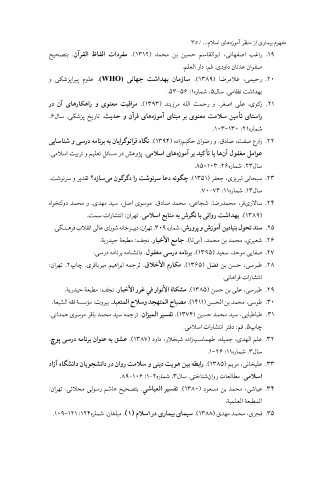 مفهوم بیماری از منظر آموزه‌های اسلام... / ۳۵
۱۹. راغب اصفهانی، ابوالقاسم حسین بن محمد (۱۴۱۲). مفردات الفاظ القرآن. بتصحیح
صفوان عدنان داودی. قم: دار العلم.
۲۰. رحیمی، غلامرضا (۱۳۸۹). سازمان بهداشت جهانی (WHO). علوم پیراپزشکی و
بهداشت نظامی. سال۵. شماره۱: ۵۶-۵۳.
۲۱. زکوی، علی اصغر، و رحمت الله مرزبند (۱۳۹۳). مراقبت معنوی و راهکارهای آن در
راستای تأمین سلامت معنوی بر مبنای آموزه‌های قرآن و حدیث. تاریخ پزشکی. سال۶.
شماره۲۱: ۱۳۰-۱۰۳.
۲۲. زارع صفت، صادق. و رضوان حکیم‌زاده (۱۳۹۴). نگاه فراتوگرایان به برنامه درسی و شناسایی
عوامل مغفول آن‌ها با تأکید بر آموزه‌های اسلامی. پژوهش در مسائل تعلیم و تربیت اسلامی.
سال ۲۳. شماره۲۶: ۱۰۳-۸۵.
۲۳. سبحانی تبریزی، جعفر (۱۳۵۱). چگونه دعا سرنوشت را دگرگون می‌سازد؟ تقدیر و سرنوشت.
سال۱۳. شماره۱۱: ۷۳-۷۰.
۲۴. سالاری‌فر، محمدرضا. شجاعی، محمد صادق. موسوی اصل، سید مهدی. و محمد دولتخواه
(۱۳۸۹). بهداشت روانی با نگرش به منابع اسلامی. تهران: انتشارات سمت.
۲۵. سند تحول بنیادین آموزش و پرورش. شماره ۳۰۹. تهران: دبیرخانه شورای عالی انقلاب فرهنگی.
۲۶. شعیری، محمد بن محمد. (بی‌تا). جامع الأخبار. نجف: مطبعة حیدریة.
۲۷. صفایی موحد، سعید (۱۳۹۵). برنامه درسی مغفول. دانشنامه برنامه درسی.
۲۸. طبرسی، حسن بن فضل (۱۳۶۵). مکارم الأخلاق. ترجمه ابراهیم میرباقری. چاپ۲. تهران:
انتشارات فراهانی.
۲۹. طبرسی، علی بن حسن (۱۳۸۵). مشکاة الأنوار فی غرر الأخبار. نجف: مطبعة حیدریة.
۳۰. طوسی، محمد بن الحسن (۱۴۱۱). مصباح المتهجد وسلاح المتعبد. بیروت: مؤسسة فقه الشیعة.
۳۱. طباطبایی، سید محمد حسین (۱۳۷۴). تفسیر المیزان. ترجمه سید محمد باقر موسوی همدانی.
چاپ۵. قم: دفتر انتشارات اسلامی.
۳۲. علم الهدی، جمیله. طهماسب‌زاده شیخلار، داود (۱۳۸۷). عشق به عنوان برنامه درسی پوچ.
سال۳. شماره۱۱: ۲۶-۱.
۳۳. علیخانی، مریم (۱۳۸۵). رابطه بین هویت دینی و سلامت روان در دانشجویان دانشگاه آزاد
اسلامی. مطالعات روان‌شناختی. سال۳. شماره۲-۱: ۱۰۶-۸۹.
۳۴. عیاشی، محمد بن مسعود (۱۳۸۰). تفسیر العیاشی. بتصحیح هاشم رسولی محلاتی. تهران:
المطبعة العلمیة.
۳۵. فجری، محمد مهدی (۱۳۸۸). سیمای بیماری در اسلام (۱). مبلغان. شماره۱۲۴: ۱۲۱-۱۰۹.